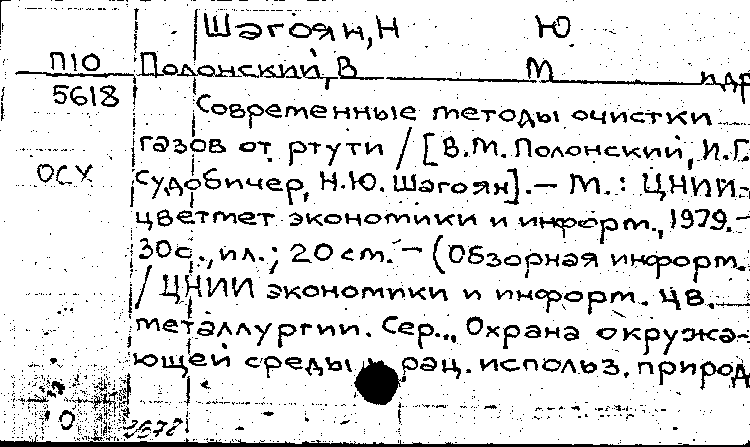 Шагоян, Н Ю
П10 Полонский, В М идр
5618 Современные методы очистки
газов от ртути / [В.М. Полонский, И.Г.
ОСУ Судобичер, Н.Ю. Шагоян]. — М.: ЦНИИ-
цветмет экономики и информ., 1979. —
30с., ил.; 20 см. — (Обзорная информ.
/ ЦНИИ экономики и информ. цв.
металлургии. Сер., Охрана окружа-
ющей среды и рац. использ. природ
0